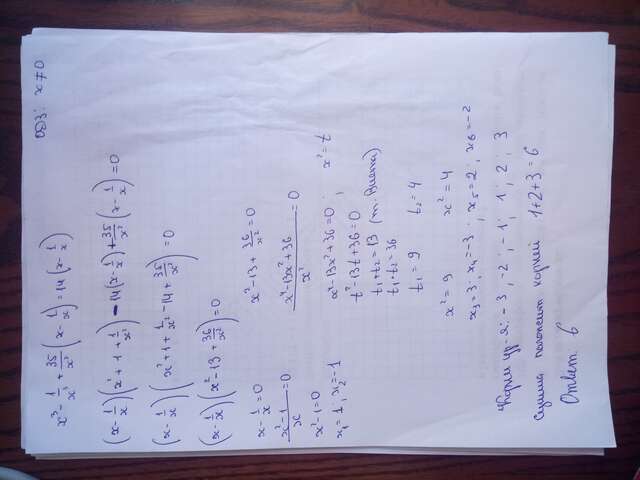 x³ - 1/x³ + 35/x² (x - 1/x) = 14 (x - 1/x)
ОДЗ: x ≠ 0
(x - 1/x)(x² + 1 + 1/x²) - 14(x - 1/x) + 35/x² (x - 1/x) = 0
(x - 1/x)(x² + 1 + 1/x² - 14 + 35/x²) = 0
(x - 1/x)(x² - 13 + 36/x²) = 0
x - 1/x = 0
(x² - 1)/x = 0
x² - 1 = 0
x₁ = 1; x₂ = -1
x² - 13 + 36/x² = 0
(x⁴ - 13x² + 36)/x² = 0
x⁴ - 13x² + 36 = 0; x² = t
t² - 13t + 36 = 0
t₁ + t₂ = 13 (т. Виета)
t₁ · t₂ = 36
t₁ = 9 t₂ = 4
x² = 9 x² = 4
x₃ = 3, x₄ = -3; x₅ = 2; x₆ = -2
Корни ур-я: -3; -2; -1; 1; 2; 3
Сумма положит корней 1+2+3=6
Ответ: 6